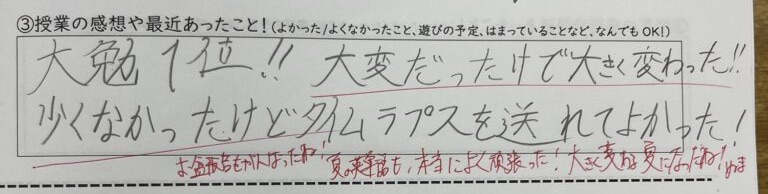 ③授業の感想や最近あったこと！(よかった/よくなかったこと、遊びの予定、はまっていることなど、なんでもOK！)
大勉1位!! 大変だったけで大きく変わった!!
少くなかったけどタイムラプスを送れてよかった！
お盆 もがんばったね！ 夏の も、本当によく頑張った！大きく変わる夏になったね！